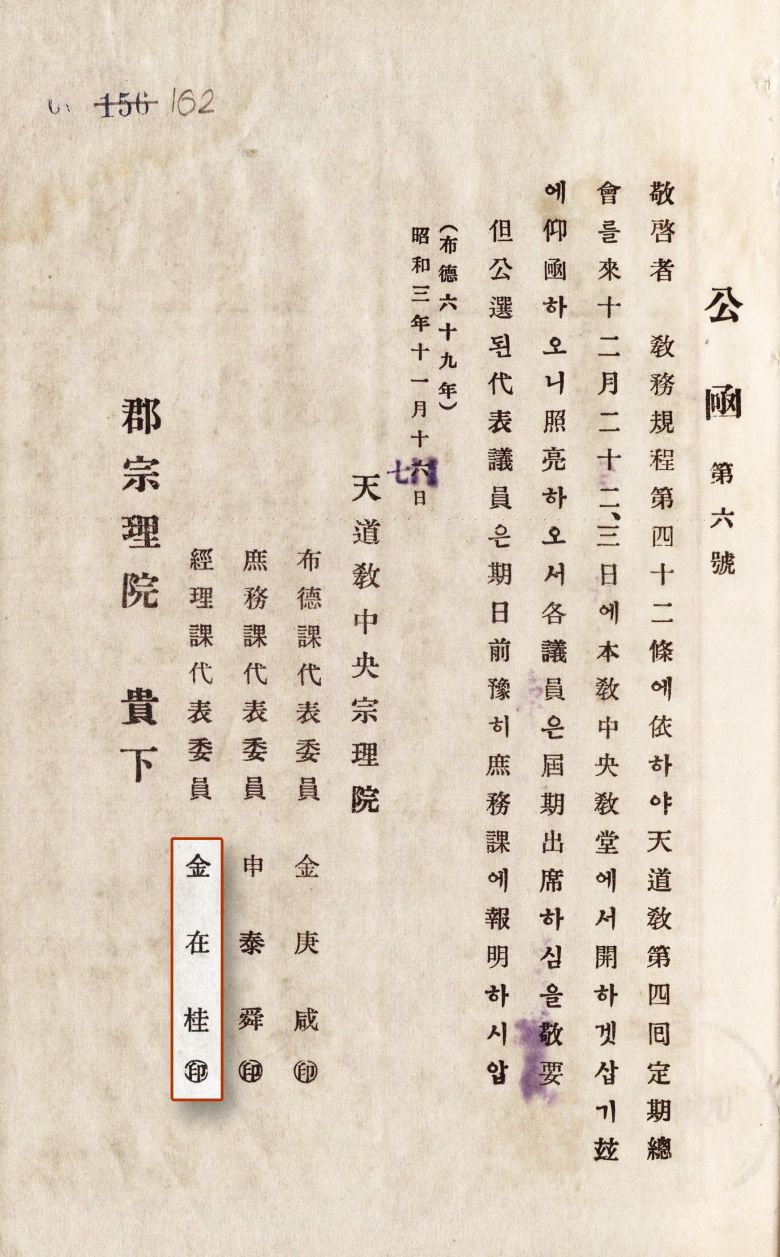 156 162
公凾 第六號
敬啓者 敎務規程第四十二條에依하야天道敎第四回定期總
會를來十二月二十二、三日에本敎中央敎堂에서開하겟삽기玆
에仰凾하오니照亮하오서各議員은屆期出席하심을敬要
但公選된代表議員은期日前豫히庶務課에報明하시압
(布德六十九年)
昭和三年十一月十七日
天道敎中央宗理院
布德課代表委員 金庚咸㊞
庶務課代表委員 申泰舜㊞
經理課代表委員 金在桂㊞
郡宗理院 貴下